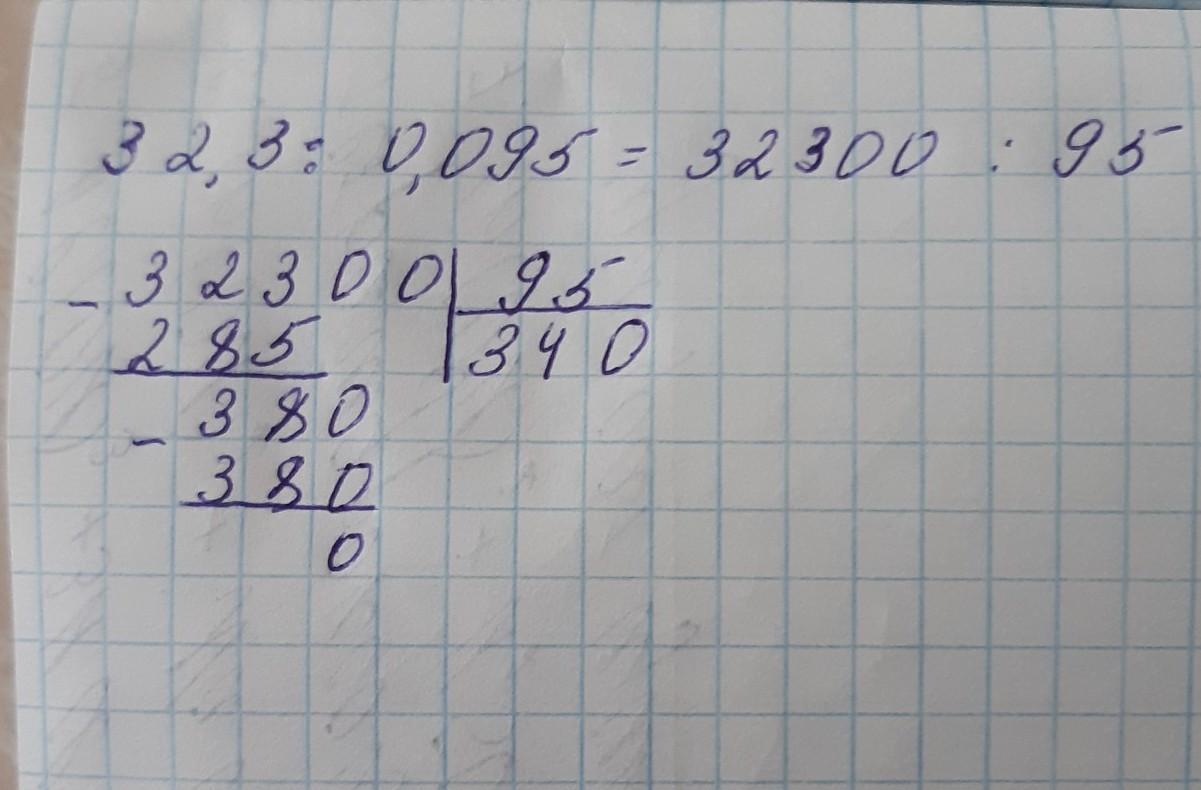 32,3 : 0,095 = 32300 : 95
- 32300 | 95
285 | 340
- 380
380
0